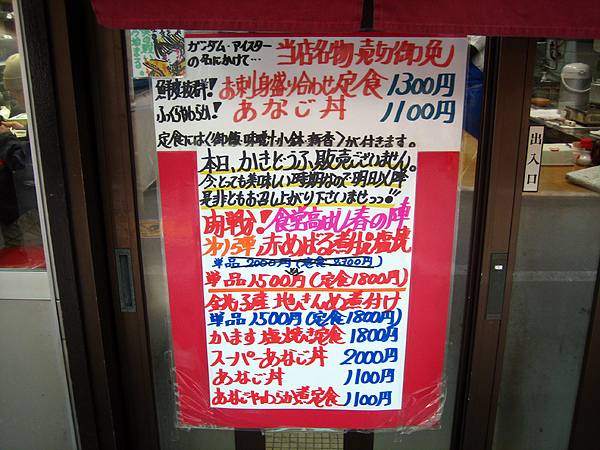 ガンダム・アイスターの名にかけて…
当店名物 売切御免
鮮度抜群! お刺身盛り合わせ定食 1300円
ふっくらやわらか! あなご丼 1100円
定食には〈御飯・味噌汁・小鉢・新香〉が付きます。
本日、かきどうふ、販売ございません。
今とっても美味しい時期なので明日以降
是非ともお召し上がり下さいませっっ!!
肉戦分! 食学高はし春の陣
第5弾 赤めばる煮or塩焼
単品2000円(定食2300円)
単品1500円(定食1800円)
銚子産 地きんめ煮付け
単品1500円(定食1800円)
かます塩焼き定食 1800円
スーパーあなご丼 2000円
あなご丼 1100円
あなごやわらか煮定食 1100円
出入口